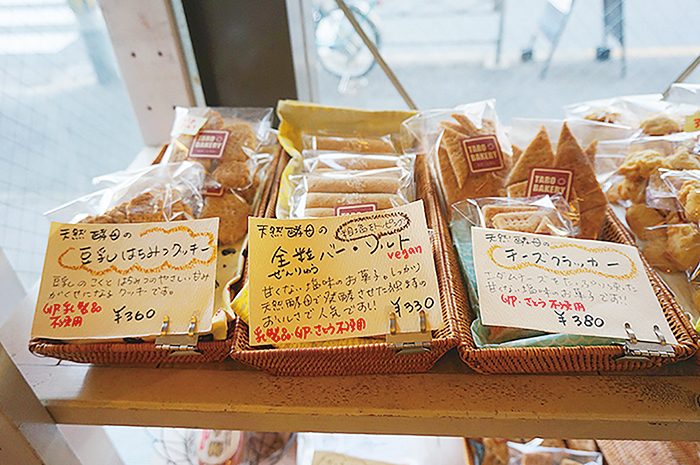 TARO BAKERY
TARO BAKERY
TARO BAKERY
天然酵母の
豆乳はちみつクッキー
豆乳のこくと はちみつのやさしい甘み
がくせになる クッキーです。
卵 乳製品
不使用
¥360
天然酵母の
全粒バー・ソルト
ぜんりゅう
粗塩トッピング
vegan
甘くない塩味のお菓子。しっかり
天然酵母で発酵させた独特の
おいしさで人気です!!
¥330
乳製品 卵 さとう不使用
天然酵母の
チーズクラッカー
甘くない塩味のお菓子です!!
卵・さとう不使用
¥380